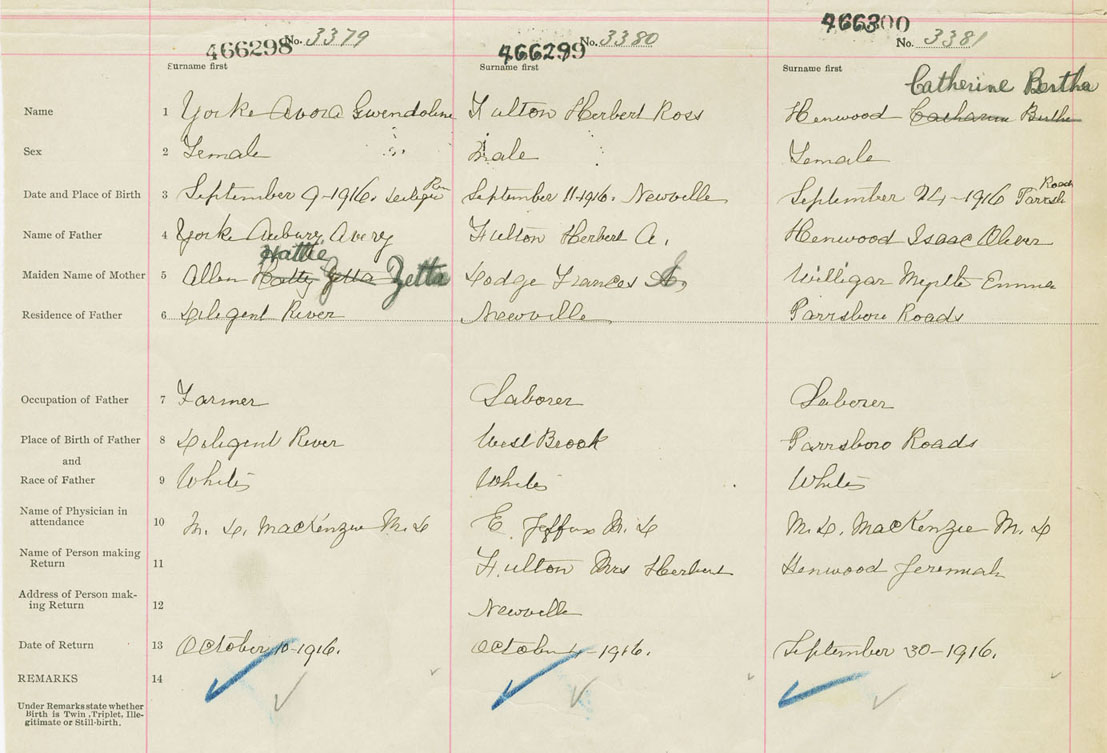 466298 No. 3379 466299 No. 3380 466300 No. 3381
Surname first Surname first Surname first
Catherine Bertha
Name 1 Yorke Avora Gwendoline Fulton Herbert Ross Henwood
Sex 2 Female Male Female
River Roads
Date and Place of Birth 3 September 9-1916. September 11-1916. Newville September 24-1916
Name of Father 4 Yorke Aubury Avery Fulton Herbert A. Henwood Isaac Oliver
Hattie
Maiden Name of Mother 5 Allen Hatty Zetta Zetta Dodge Frances Willigar Myrtle Emma
Residence of Father 6 Diligent River Newville Parrsboro Roads
Occupation of Father 7 Farmer Laborer Laborer
Place of Birth of Father 8 Diligent River West Brook Parrsboro Roads
and
Race of Father 9 White White White
Name of Physician in
attendance 10 M. D. MacKenzie M. D E. M. D M. D. MacKenzie M. D
Name of Person making
Return 11 Fulton Mrs Herbert Henwood Jeremiah
Address of Person mak-
ing Return 12 Newville
Date of Return 13 October 10-1916. October -1916. September 30-1916.
REMARKS 14
Under Remarks state whether
Birth is Twin, Triplet, Ille-
gitimate or Still-birth.